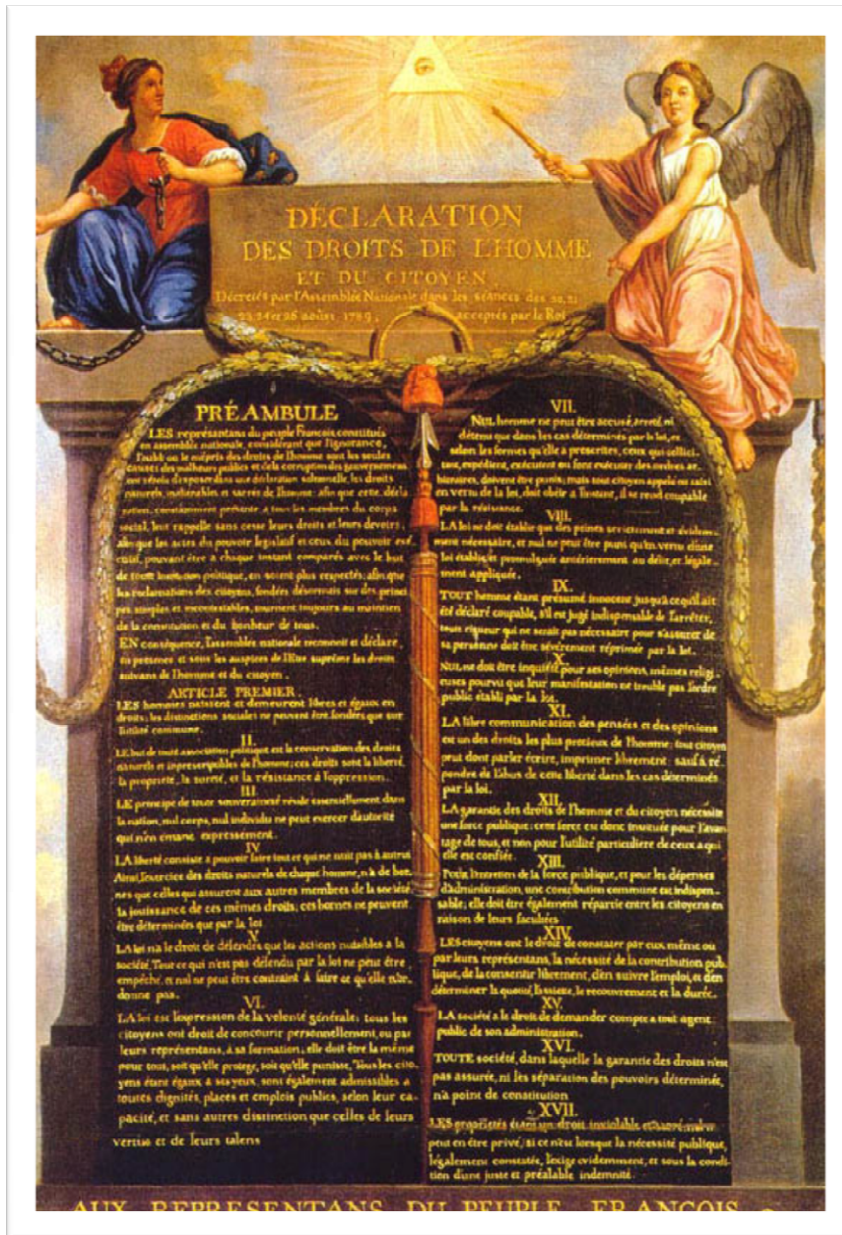 DÉCLARATION
DES DROITS DE L'HOMME
ET DU CITOYEN
Décretés par l'Assemblée Nationale dans les séances des 20, 21
23, 24 et 26 août 1789, acceptés par le Roi
PRÉAMBULE
LES représentans du peuple Francois, constitués
en assemblée nationale, considérant que l'ignorance,
l'oubli ou le mépris des droits de l'homme sont les seules
causes des malheurs publics et de la corruption des gouvernemens
ont résolu d'exposer dans une déclaration solemnelle, les droits
naturels, inaliénables et sacrés de l'homme: afin que cette décla
ration, constamment présente a tous les membres du corps
social, leur rappelle sans cesse leurs droits et leurs devoirs;
afin que les actes du pouvoir législatif et ceux du pouvoir exé
cutif, pouvant être à chaque instant comparés avec le but
de toute institution politique, en soient plus respectés; afin que
les réclamations des citoyens, fondées désormais sur des princi
pes simples et incontestables, tournent toujours au maintien
de la constitution et du bonheur de tous.
EN conséquence, l'assemblée nationale reconnoit et déclare,
en présence et sous les auspices de l'Etre suprême les droits
suivans de l'homme et du citoyen.
ARTICLE PREMIER.
LES hommes naissent et demeurent libres et égaux en
droits; les distinctions sociales ne peuvent être fondées que sur
l'utilité commune.
II.
LE but de toute association politique est la conservation des droits
naturels et imprescriptibles de l'homme; ces droits sont la liberté,
la propriété, la sureté, et la résistance à l'oppression.
III.
LE principe de toute souveraineté réside essentiellement dans
la nation, nul corps, nul individu ne peut exercer d'autorité
qui n'en émane expressément.
IV
LA liberté consiste a pouvoir faire tout ce qui ne nuit pas à autrui
Ainsi, l'exercice des droits naturels de chaque homme, n'a de bor
nes que celles qui assurent aux autres membres de la société
la jouissance de ces mêmes droits; ces bornes ne peuvent
être déterminées que par la loi
V.
LA loi n'a le droit de défendre que les actions nuisibles a la
société. Tout ce qui n'est pas défendu par la loi ne peut être
empêché, et nul ne peut être contraint à faire ce qu'elle n'or-
donne pas.
VI.
LA loi est l'expression de la volonté générale; tous les
citoyens ont droit de concourir personnellement, ou par
leurs représentans, à sa formation; elle doit être la même
pour tous, soit qu'elle protege, soit qu'elle punisse. Tous les cito
yens étant égaux à ses yeux, sont également admissibles a
toutes dignités, places et emplois publics, selon leur ca
pacité, et sans autres distinction que celles de leurs
vertus et de leurs talens
VII.
NUL homme ne peut être accusé, arreté, ni
détenu que dans les cas déterminés par la loi, et
selon les formes qu'elle a prescrites, ceux qui sollici-
tent, expédient, exécutent ou font exécuter des ordres ar-
bitraires, doivent être punis; mais tout citoyen appelé ou saisi
en vertu de la loi, doit obéir a l'instant, il se rend coupable
par la résistance.
VIII.
LA loi ne doit établir que des peines strictement et évidem-
ment nécessaire, et nul ne peut être puni qu'en vertu d'une
loi établie, et promulguée antérierement au délit, et légale-
ment appliquée.
IX.
TOUT homme étant présumé innocent jusqu'a ce qu'il ait
été déclaré coupable, s'il est jugé indispensable de l'arrêter,
toute rigueur qui ne serait pas nécessaire pour s'assurer de
sa personne doit être sévèrement réprimée par la loi.
X.
NUL ne doit être inquiété pour ses opinions, mêmes religi-
euses pourvu que leur manifestation ne trouble pas l'ordre
public établi par la loi.
XI.
LA libre communication des pensées et des opinions
est un des droits les plus precieux de l'homme; tout citoyen
peut donc parler écrire, imprimer librement: sauf à ré-
pondre de l'abus de cette liberté dans les cas déterminés
par la loi.
XII.
LA garantie des droits de l'homme et du citoyen nécessite
une force publique; cette force est donc instituée pour l'avan-
tage de tous, et non pour l'utilité particuliere de ceux a qui
elle est confiée.
XIII.
Pour l'entretien de la force publique, et pour les dépenses
d'administration, une contribution commune est indispen-
sable; elle doit être également répartie entre les citoyens en
raison de leurs facultées
XIV.
LES citoyens ont le droit de constater par eux même ou
par leurs représentans, la nécessité de la contribution pub-
lique, de la consentir librement, d'en suivre l'emploi, et d'en
déterminer la quotité, l'assiette, le recouvrement et la durée.
XV.
LA société a le droit de demander compte a tout agent
public de son administration.
XVI.
TOUTE société, dans laquelle la garantie des droits n'est
pas assurée, ni les séparation des pouvoirs déterminée,
n'a point de constitution
XVII.
LES propriétés étant un droit inviolable et sacré, nul ne
peut en être privé, si ce n'est lorsque la nécessité publique,
légalement constatée, l'exige evidemment, et sous la condi-
tion d'une juste et préalable indemnité.
AUX REPRESENTANS DU PEUPLE FRANCOIS